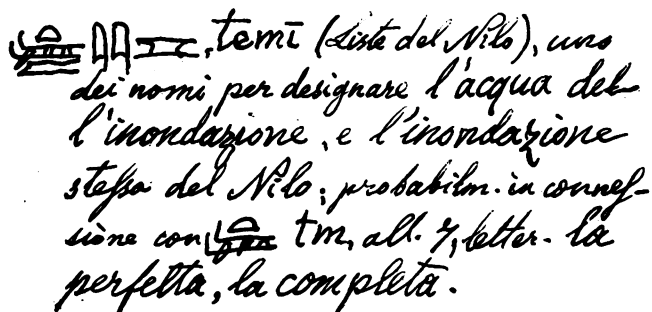 , temī (Liste del Nilo), uno
dei nomi per designare l'acqua del-
l'inondazione, e l'inondazione
stessa del Nilo; probabilm. in connes-
sione con tm, all. 7, letter. la
perfetta, la completa.